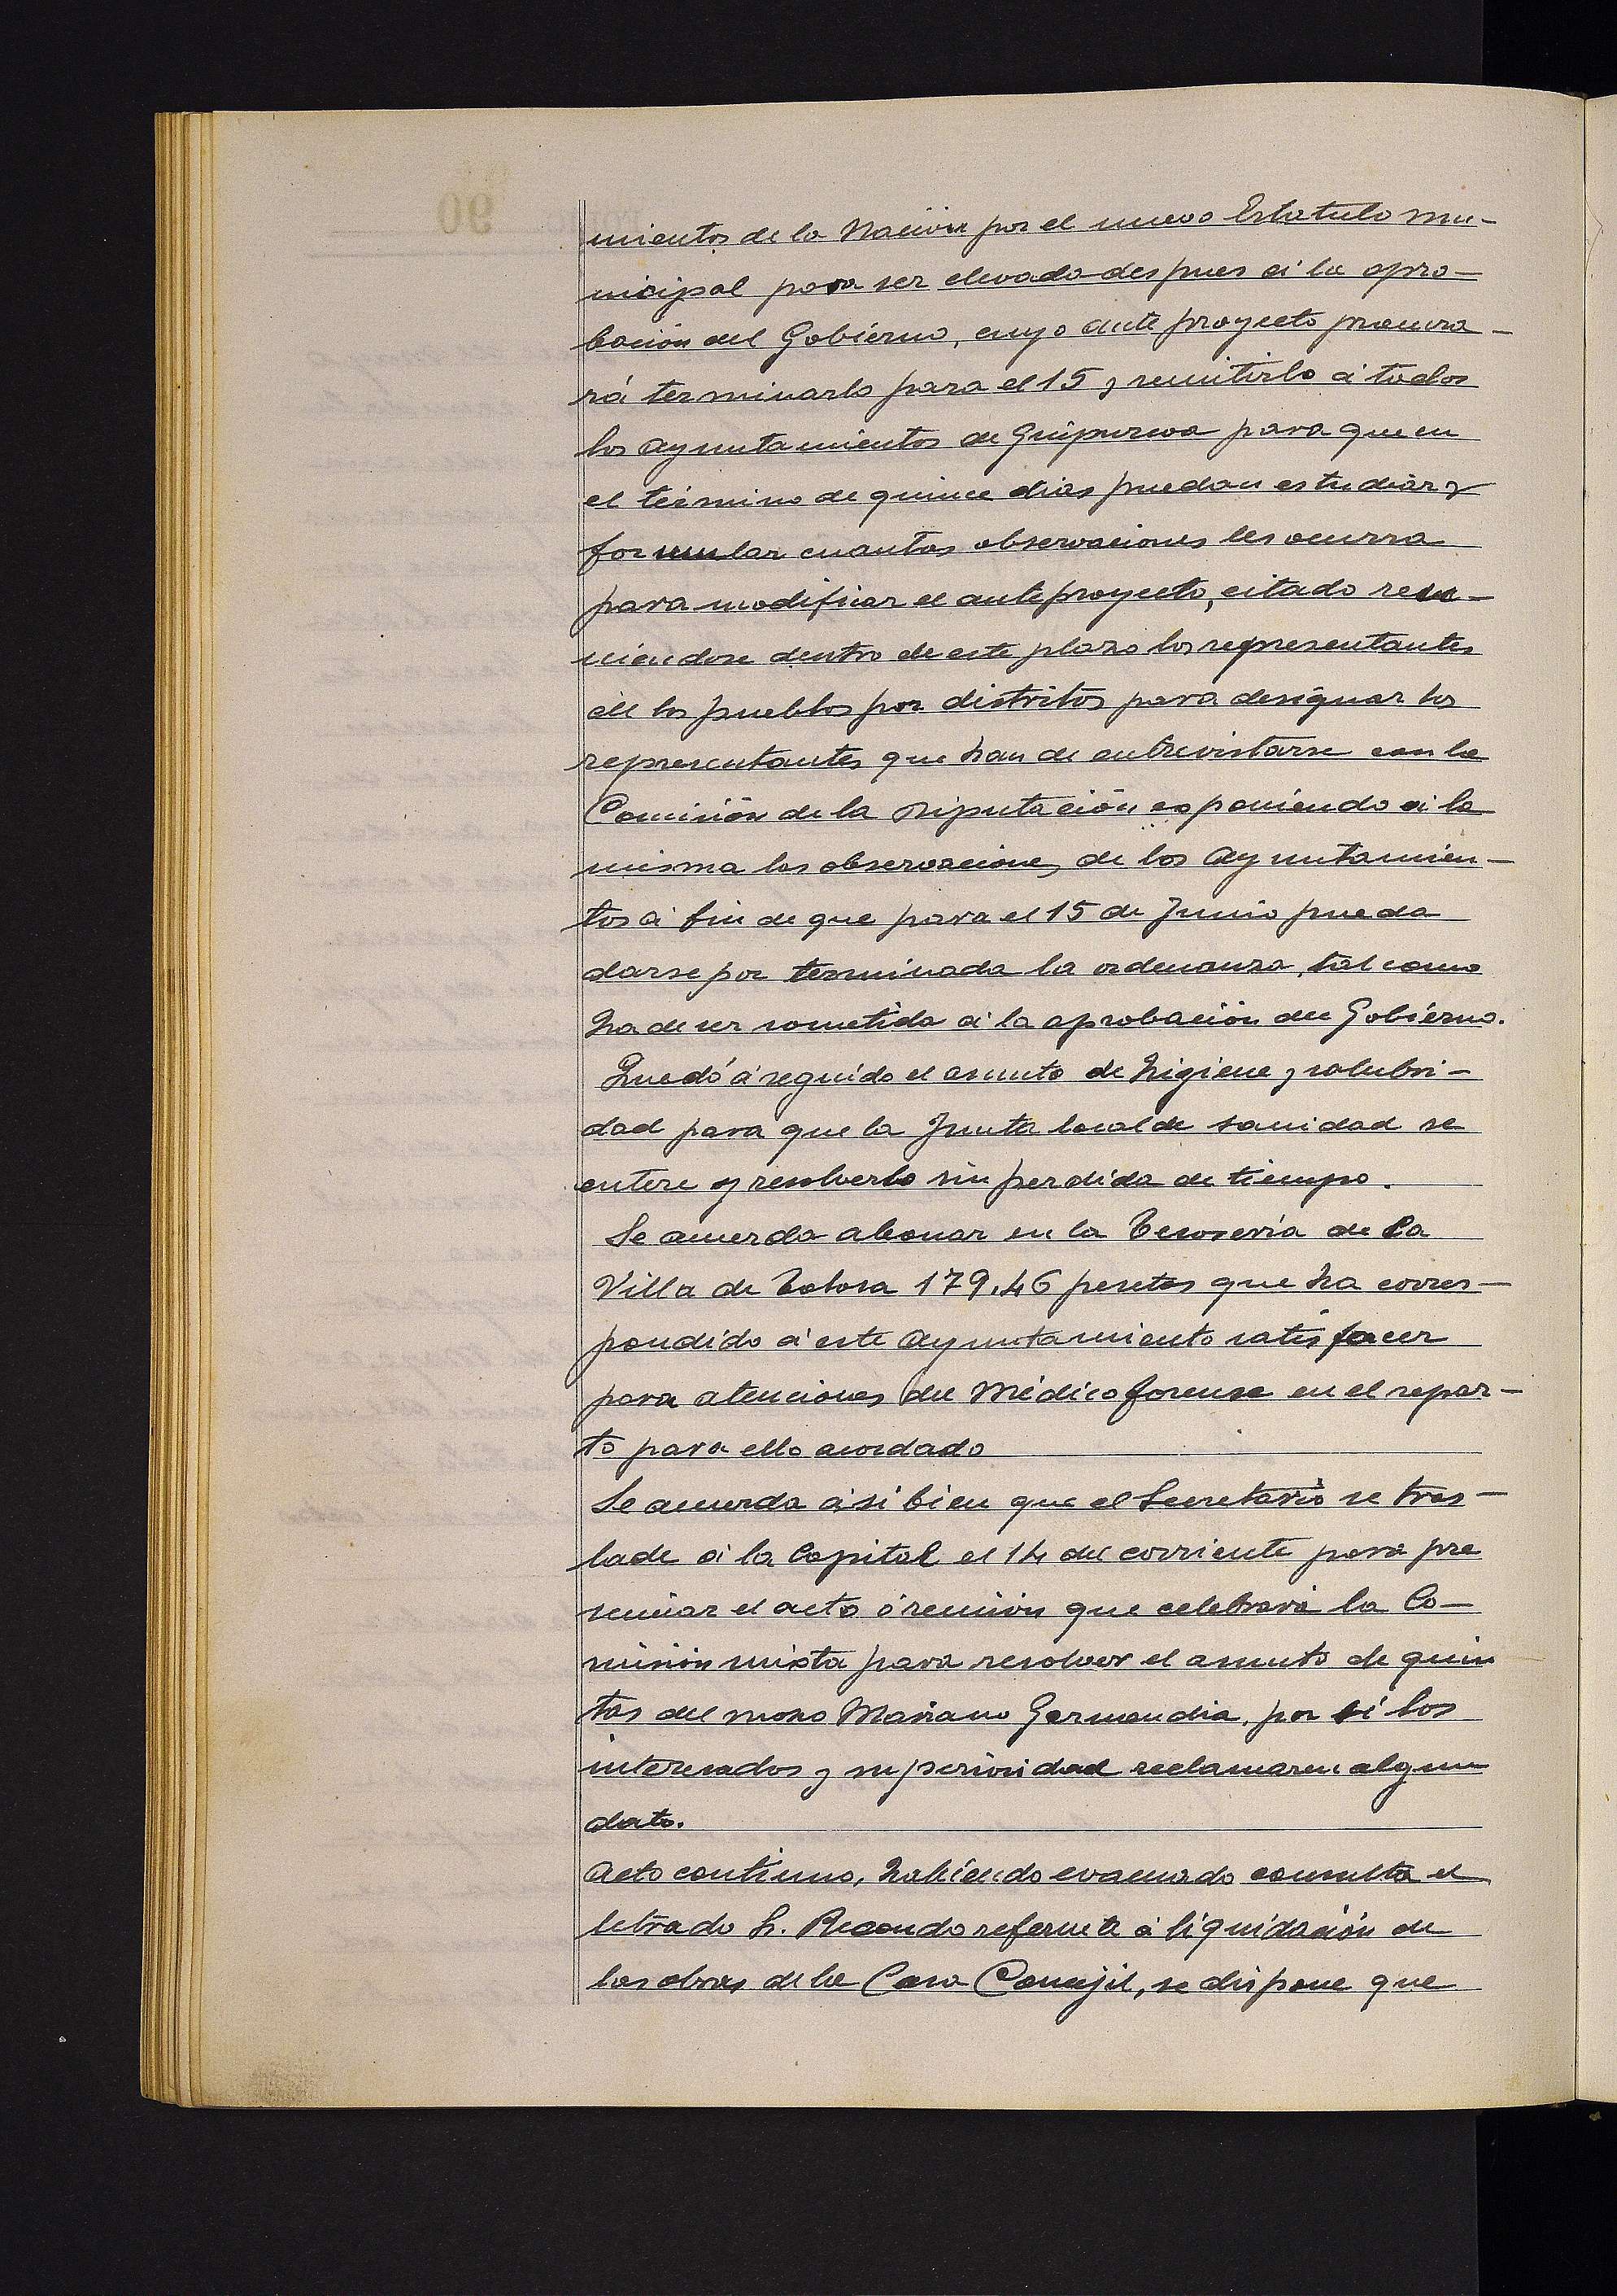 mientos de la Nación por el nuevo Estatuto mu-
nicipal para ser elevado despues á la apro-
bación del Gobierno, cuyo ante proyecto procura-
rá terminarlo para el 15 y remitirlo á todos
los Ayuntamientos de Guipuzcoa para que en
el término de quince dias puedan estudiar y
formular cuantas observaciones les ocurra
para modificar el anteproyecto, citado reu-
niendose dentro de este plazo los representantes
de los pueblos por distritos para designar los
representantes que han de entrevistarse con la
Comisión de la Diputación exponiendo á la
misma las observaciones de los Ayuntamien-
tos á fin de que para el 15 de Junio pueda
darse por terminada la ordenanza, tal como
ha de ser sometida á la aprobación del Gobierno.
Quedó á seguido el asunto de higiene y salubri-
dad para que la Junta local de sanidad se
entere y resolverlo sin perdida de tiempo.
Se acuerda abonar en la Tesoreria de la
Villa de Tolosa 179.46 pesetas que ha corres-
pondido á este Ayuntamiento satisfacer
para atenciones del Médico forense en el repar-
to para ello acordado
Se acuerda asi bien que el Secretario se tras-
lade á la Capital el 14 del corriente para pre
senciar el acto ó reunión que celebrará la Co-
misión mixta para resolver el asunto de quin
tas del mozo Mariano Garmendia, por si los
interesados y superioridad reclamaren algun
dato.
Acto continuo, habiendo evacuado consulta el
letrado S. Recondo referente á liquidación de
las obras de la Casa Concejil, se dispone que
90